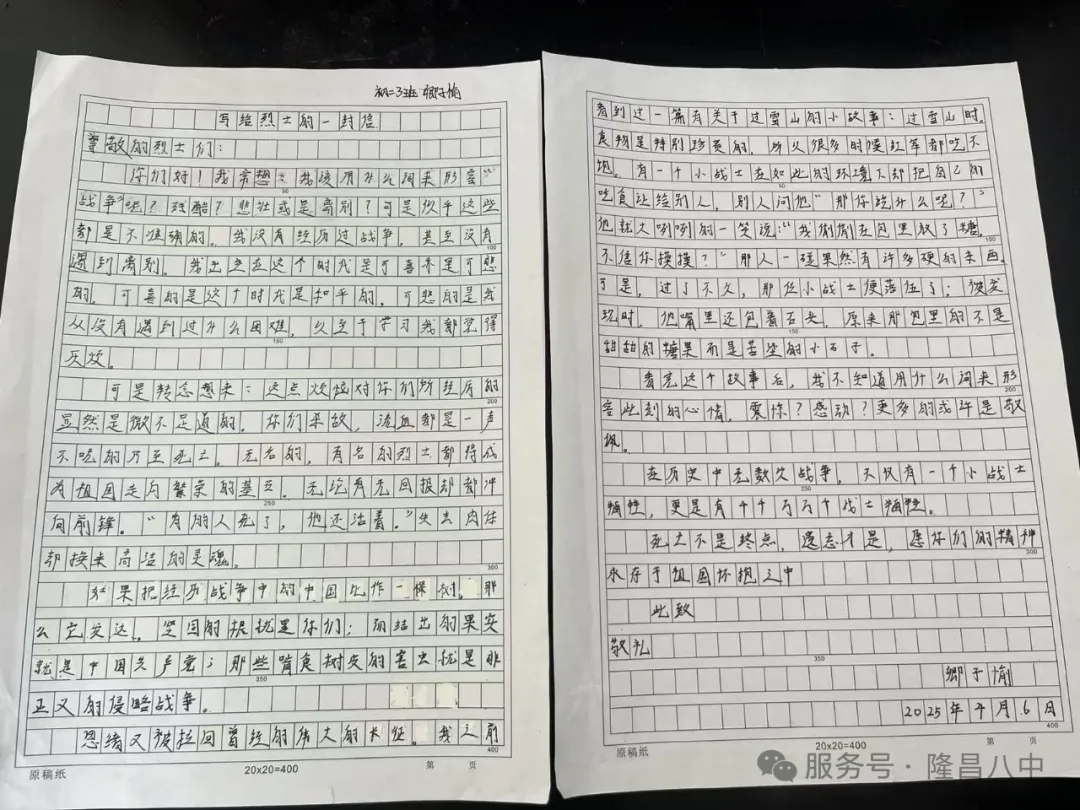 初二3班 卿子愉
写给烈士的一封信
尊敬的烈士们：
你们好！我常想：我该用什么词来形容“
战争”呢？残酷？悲壮或是离别？可是似乎这些
都是不准确的。我没有经历过战争，甚至没有
遇到离别。我出生在这个时代是可喜亦是可悲
的。可喜的是这个时代是和平的，可悲的是我
从没有遇到过什么困难，以至于学习我都觉得
厌烦。
可是转念想来：这点烦恼对你们所经历的
显然是微不足道的。你们牺牲，流血都是一声
不吭的乃至死亡。无名的，有名的烈士都得成
为祖国走向繁荣的基石。无论有无回报却都冲
向前锋。“有的人死了，他还活着。”失去肉体
却换来高洁的灵魂。
如果把经历战争中的中国比作一棵树。那
么它发达。坚固的根就是你们；而结出的果实
就是中国共产党；那些啃食树皮的害虫就是非
正义的侵略战争。
思绪又被拉回曾经的伟大的长征。我之前
原稿纸
20×20=400
第 页
看到过一篇有关于过雪山的小故事：过雪山时，
食物是特别珍贵的，所以很多时候红军都吃不
饱。有一个小战士在如此的环境下却把自己的
吃食让给别人，别人问他“那你吃什么呢？”
他就大咧咧的一笑说：“我偷偷在包里放了糖。
不信你摸摸？”那人一碰果然有许多硬的东西。
可是，过了不久，那位小战士便落伍了；被发
现时，他嘴里还包着石头，原来那包里的不是
甜甜的糖果而是苦涩的小石子。
看完这个故事后，我不知道用什么词来形
容此刻的心情，震惊？感动？更多的或许是敬
佩。
在历史中无数次战争，不仅有一个小战士
牺牲，更是有千千万万个战士牺牲。
死亡不是终点，遗忘才是，愿你们的精神
永存于祖国怀抱之中
此致
敬礼
卿子愉
2025年4月6日
原稿纸
20×20=400
第 页
服务号·隆昌八中